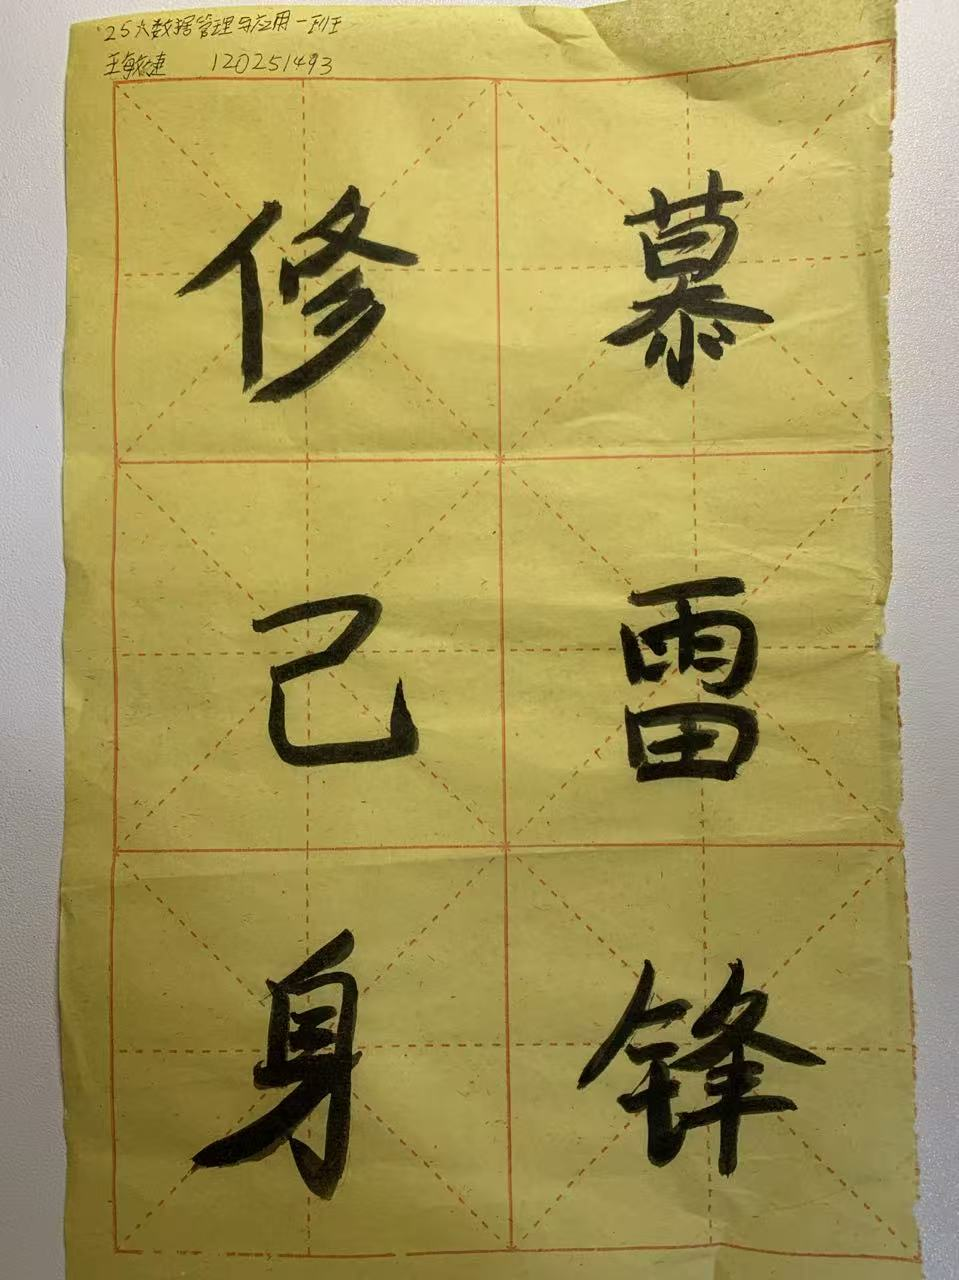 25大数据管理与应用一班
王敏捷 120251493
慕雷锋
修己身